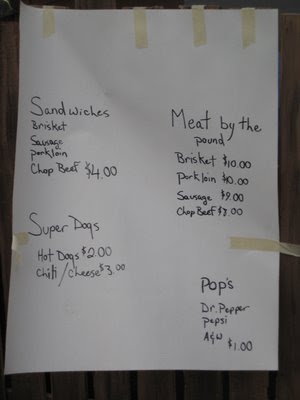 Sandwiches
Brisket
Sausage
porkloin
Chop Beef $4.00
Super Dogs
Hot Dogs $2.00
Chili/Cheese $3.00
Meat by the
pound
Brisket $10.00
porkloin $10.00
Sausage $9.00
Chop Beef $7.00
Pop's
Dr. Pepper
pepsi
A&W $1.00